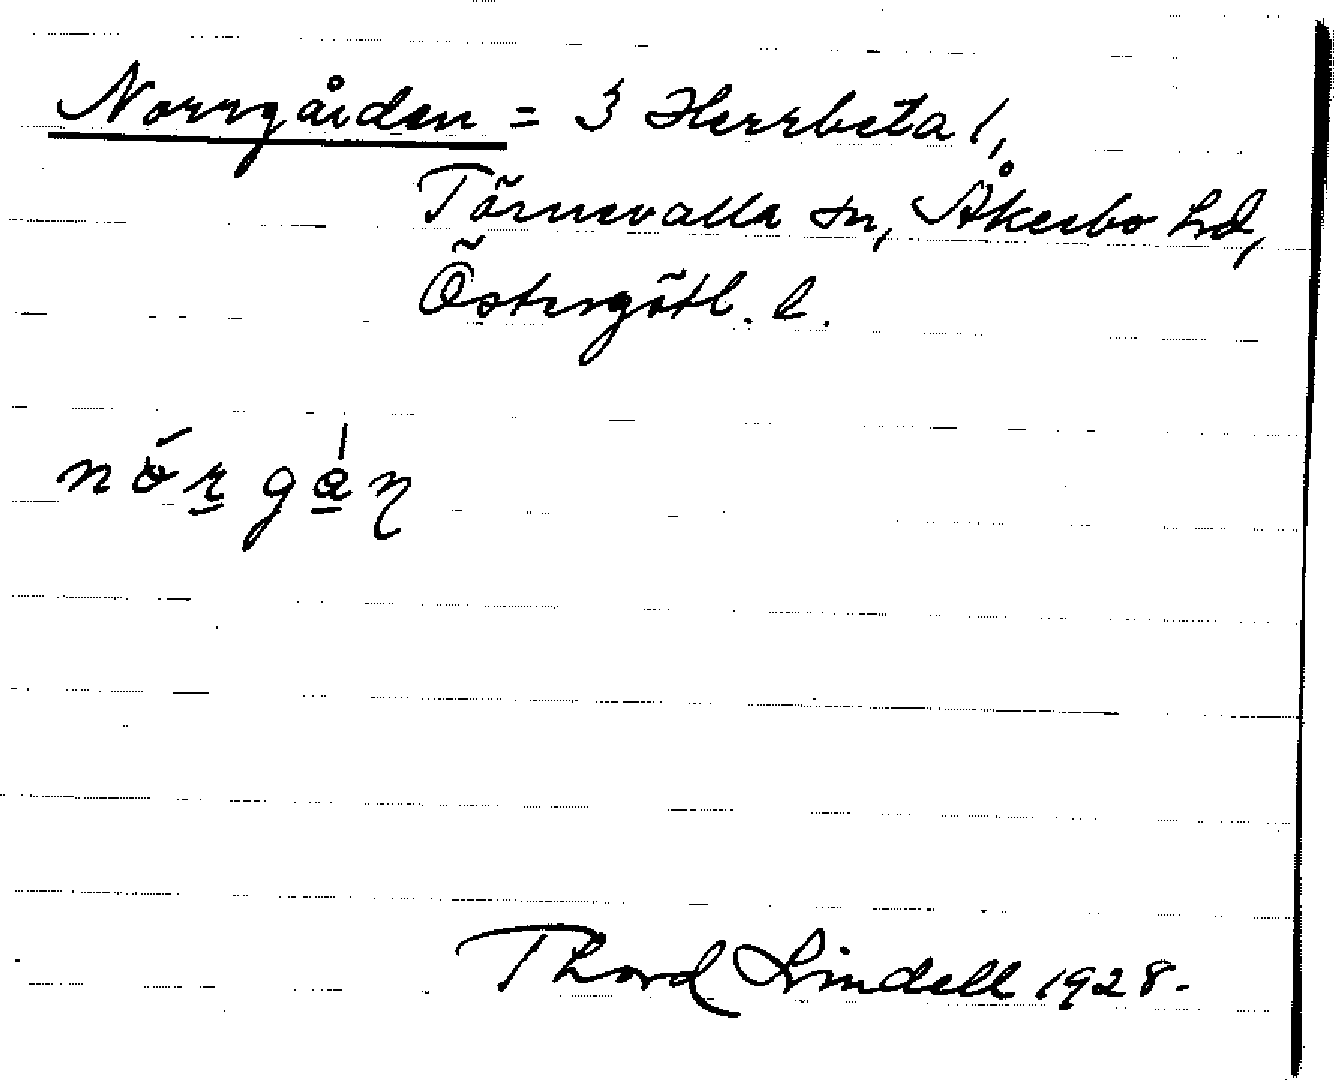 Norrgården = 3 Herrbeta 1,
Törnevalla sn, Åkerbo hd,
Östergötl. l.
Thord Lindell 1928.